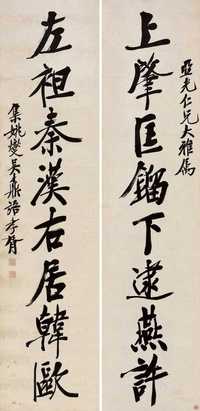 上肇匡鎦下逮燕許
亞光仁兄大雅屬
左袒秦漢右居韓歐
集姚燮吳鼒語 孝胥